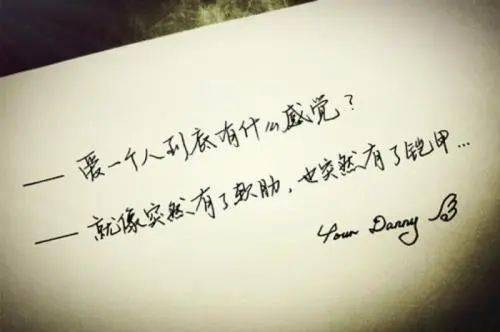 —— 爱一个人到底有什么感觉？
—— 就像突然有了软肋，也突然有了铠甲…
Your Danny